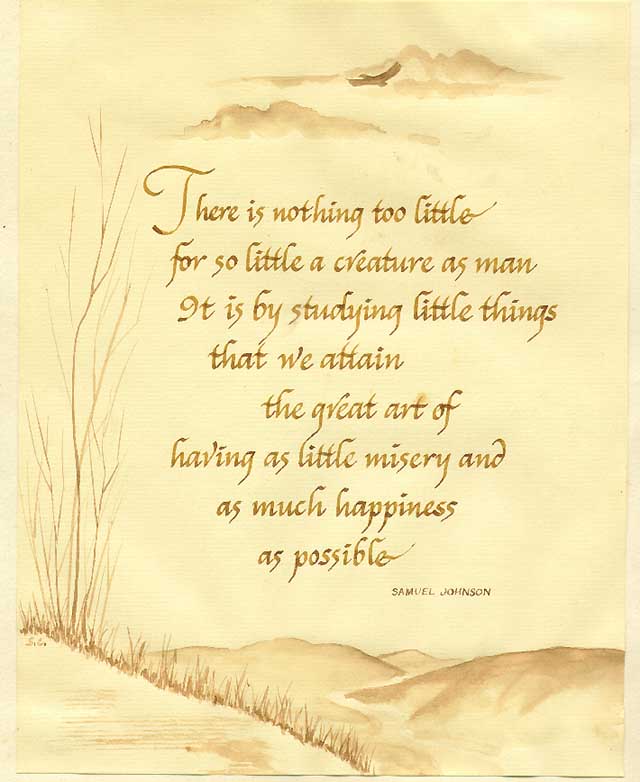 There is nothing too little
for so little a creature as man
It is by studying little things
that we attain
the great art of
having as little misery and
as much happiness
as possible
SAMUEL JOHNSON
S.G.